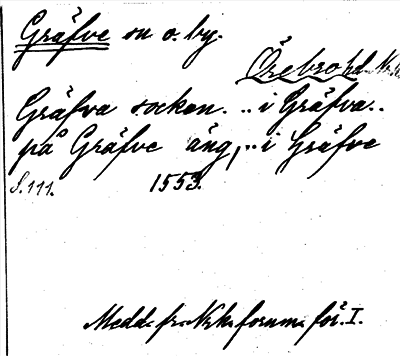 Gräfve sn o. by.
Örebro hd. Nrk.
Gräfva socken. .. i Gräfva..
på Gräfve äng, .. i Gräfve
S. 111. 1553.
Medd. fr. Nrk. fornm. för. I.